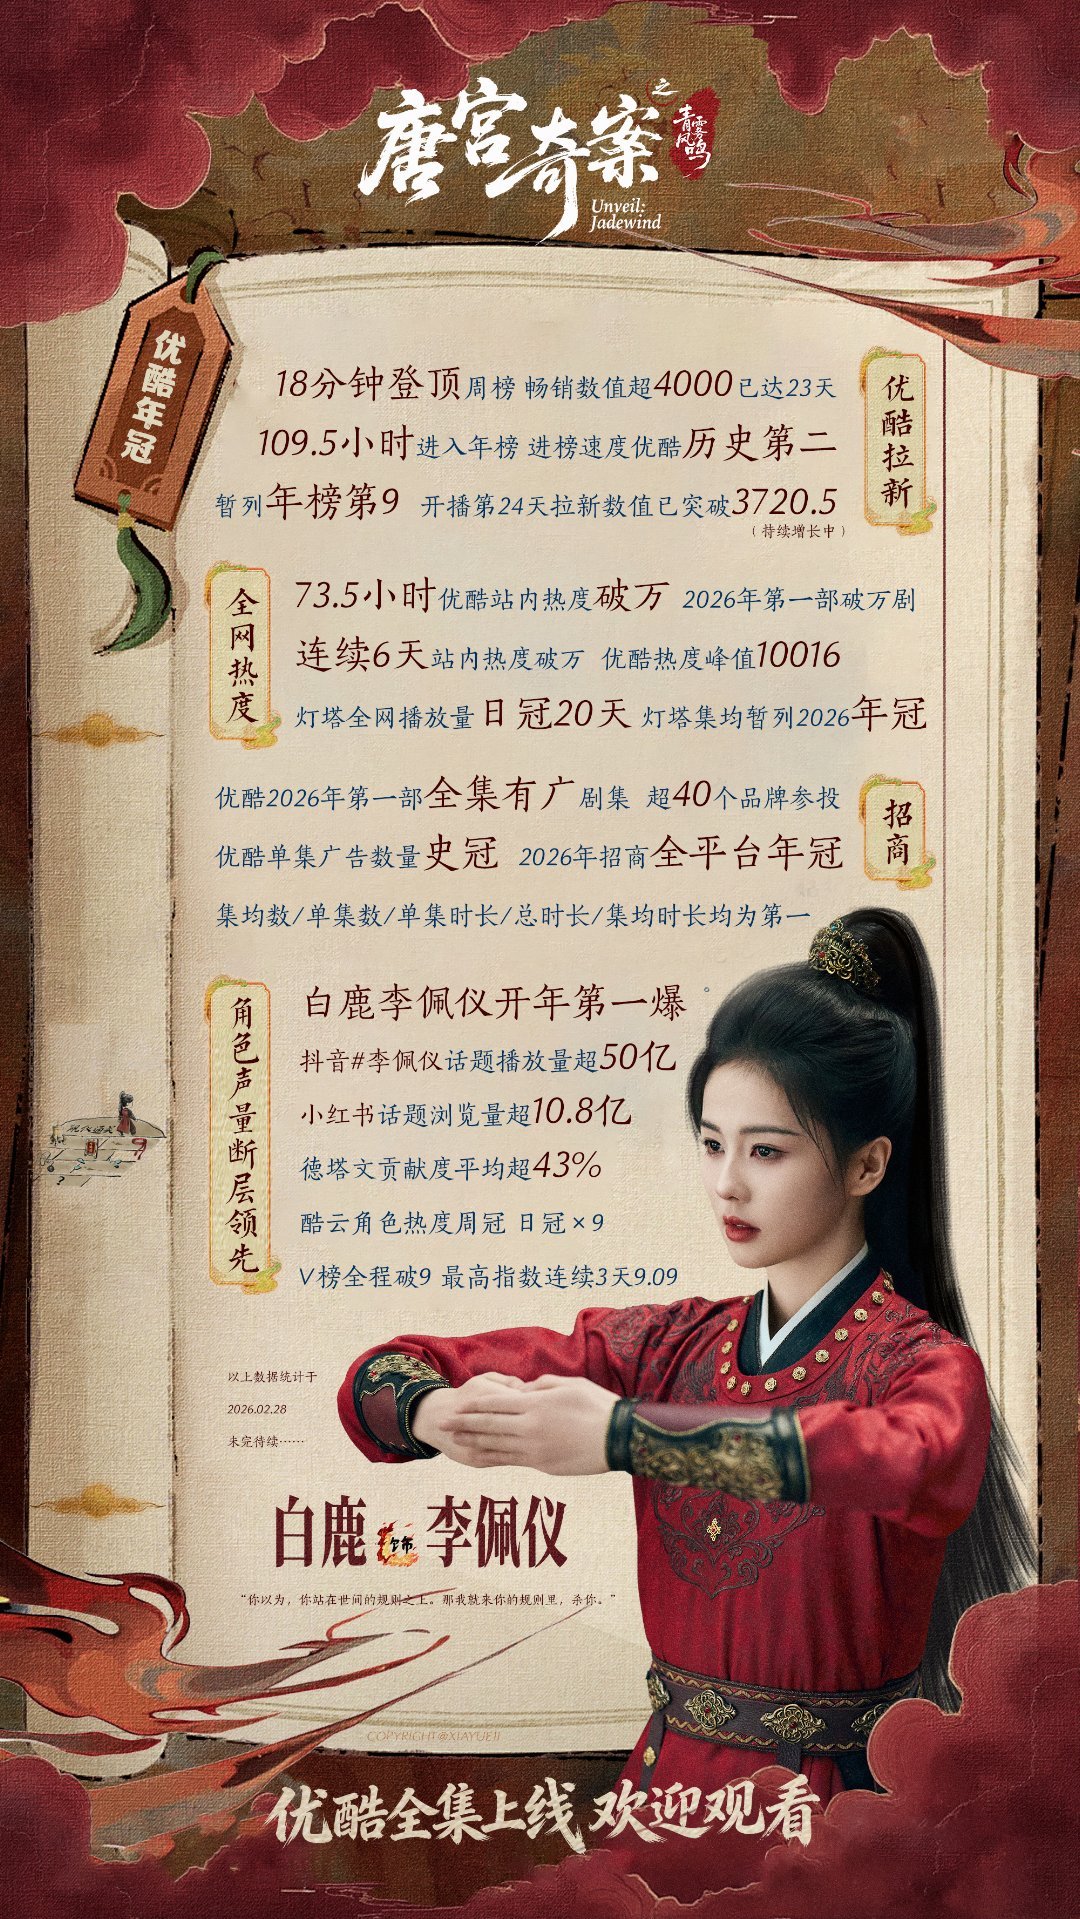 唐宫奇案
之
青雾风鸣
Unveil:
Jadewind
优酷年冠
优酷拉新
18分钟登顶周榜 畅销数值超4000已达23天
109.5小时进入年榜 进榜速度优酷历史第二
暂列年榜第9 开播第24天拉新数值已突破3720.5
（持续增长中）
全网热度
73.5小时优酷站内热度破万 2026年第一部破万剧
连续6天站内热度破万 优酷热度峰值10016
灯塔全网播放量日冠20天 灯塔集均暂列2026年冠
招商
优酷2026年第一部全集有广剧集 超40个品牌参投
优酷单集广告数量史冠 2026年招商全平台年冠
集均数/单集数/单集时长/总时长/集均时长均为第一
角色声量断层领先
白鹿李佩仪开年第一爆
抖音#李佩仪话题播放量超50亿
小红书话题浏览量超10.8亿
德塔文贡献度平均超43%
酷云角色热度周冠 日冠×9
V榜全程破9 最高指数连续3天9.09
以上数据统计于
2026.02.28
未完待续……
白鹿 饰 李佩仪
“你以为，你站在世间的规则之上。那我就来你的规则里，杀你。”
COPYRIGHT@XIAYUEJI
优酷全集上线 欢迎观看